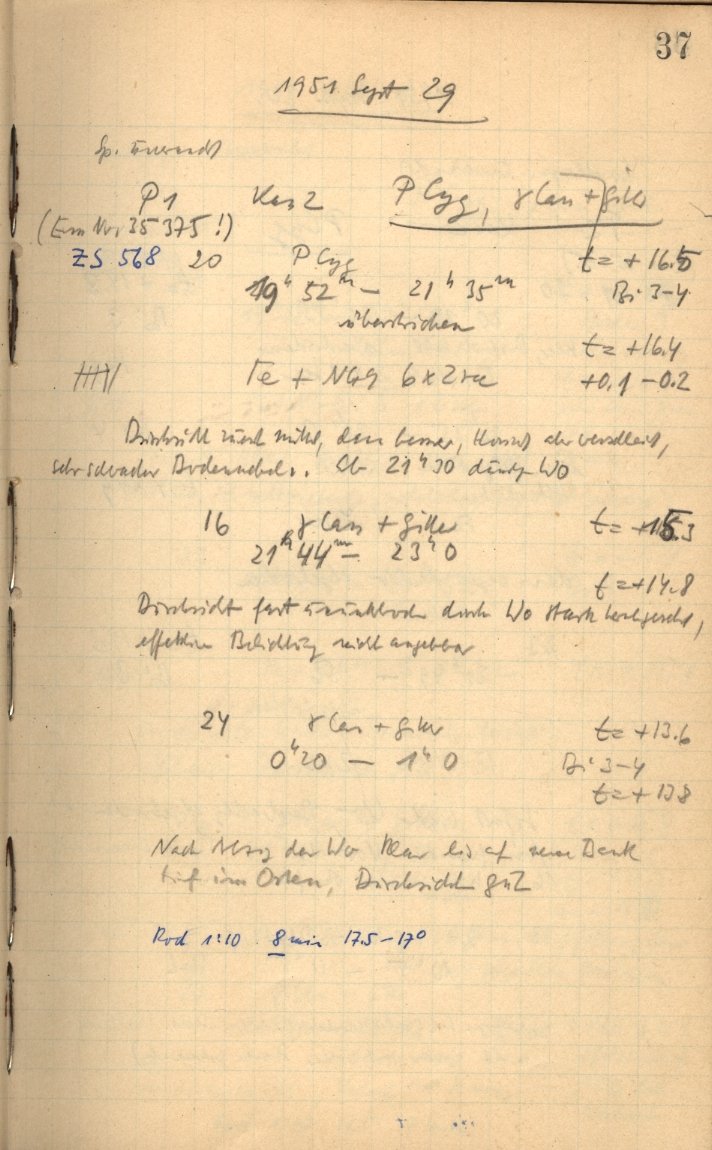 37
1951 Sept 29
Sp.
P1 Kas 2 P Cyg, γ Cas + Gitter
(Em Nr. 35 375!)
ZS 568 20 P Cyg t = + 16.5
19h 52m – 21h 35m Bi 3–4
überstrichen
t = +16.4
Fe + NG9 6x2 +0.1 –0.2
Durchsicht zuerst mittel, dann besser, Horizont aber verschleiert,
sehr schwacher Bodennebel. Ab 21h30 Wo
16 γ Cas + Gitter t = +15.3
21h 44m – 23h 0
t = +14.8
Durchsicht fast durch Wo stark
effektive Belichtung nicht angebbar
24 γ Cas + Gitter t = +13.6
0h20 – 1h 0 Bi 3–4
t = + 13.8
Nach Abzug der Wo klar bis auf
tief im Osten, Durchsicht gut
Rod 1:10 8 min 17.5–17°